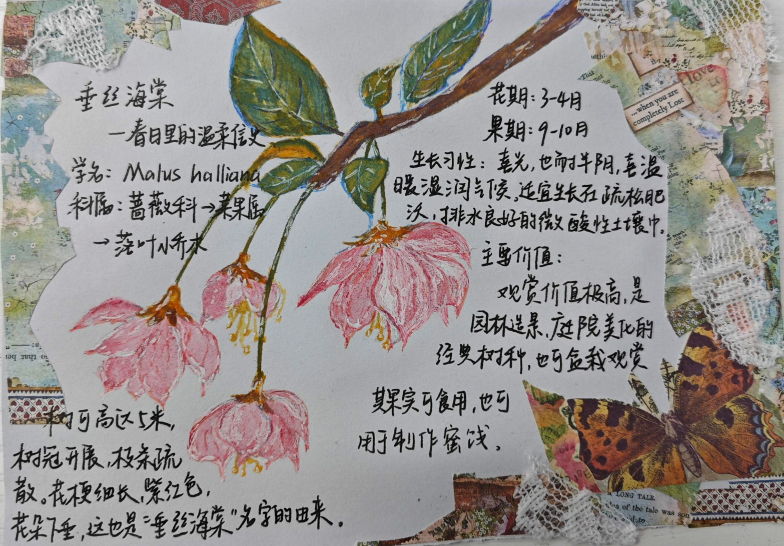 垂丝海棠
—春日里的温柔信史
学名: Malus halliana
科属: 蔷薇科→苹果属
→落叶小乔木
花期: 3-4月
果期: 9-10月
生长习性: 喜光, 也耐半阴, 喜温
暖湿润气候, 适宜生长在疏松肥
沃, 排水良好的微酸性土壤中。
主要价值:
观赏价值极高, 是
园林造景, 庭院美化的
经典树种, 也可盆栽观赏
其果实可食用, 也可
用于制作蜜饯。
树可高达5米,
树冠开展, 枝条疏
散。花梗细长, 紫红色,
花朵下垂, 这也是“垂丝海棠”名字的由来。
love
...when you are
completely Lost
LONG TALE.